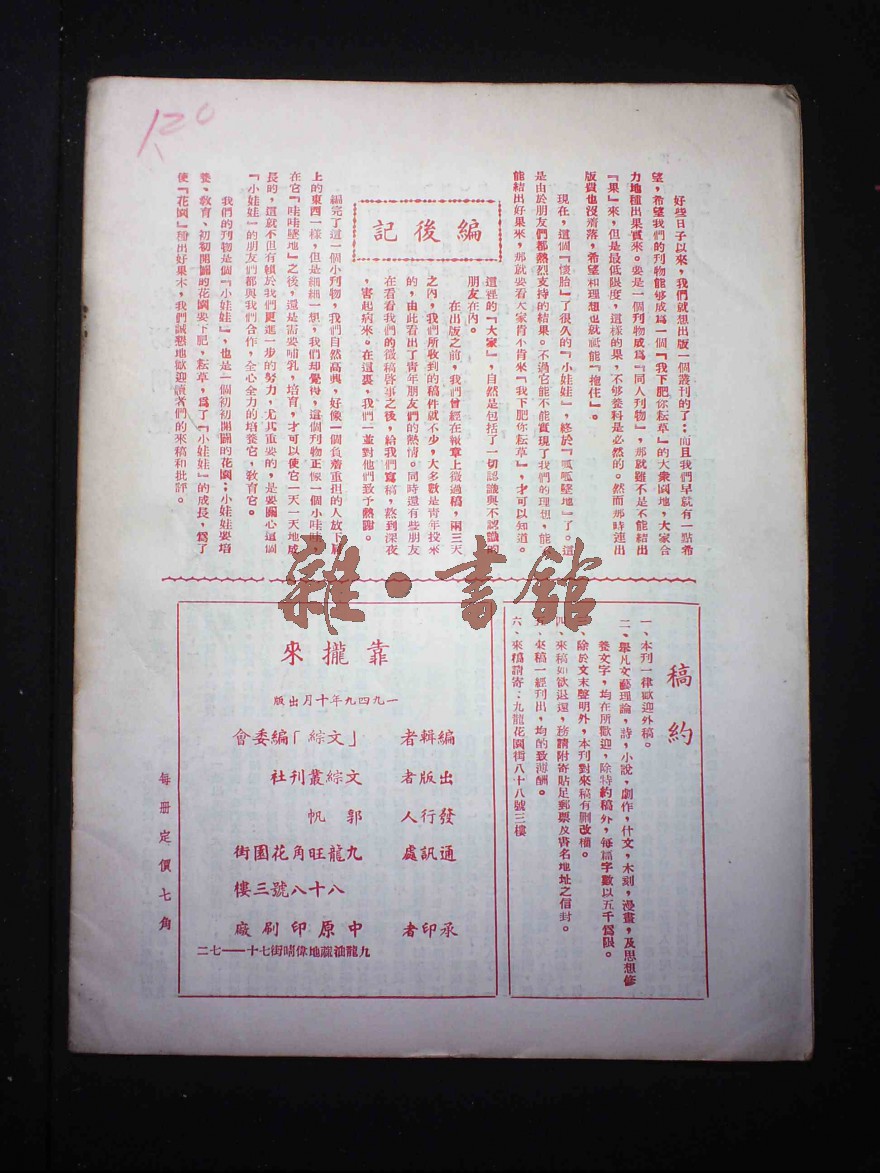 120
編後記
好些日子以來，我們就想出版一個叢刊的了…而且我們早就有一點希
望，希望我們的刊物能够成爲一個『我下肥你耘草』的大衆園地，大家合
力地種出果實來。要是一個刊物成爲『同人刊物』，那就雖不是不能結出
『果』來，但是最低限度，這樣的果，不够養料是必然的。然而那時連出
版費也沒着落，希望和理想也就祗能『抱住』。
現在，這個『懷胎』了很久的『小娃娃』，終於『呱呱墜地』了。這
是由於朋友們都熱烈支持的結果。不過它能不能實現了我們的理想，能
能結出好果來，那就要看大家肯不肯來『我下肥你耘草』，才可以知道。
這裡的『大家』，自然是包括了一切認識與不認識的
朋友在內。
在出版之前，我們曾經在報章上徵過稿，兩三天
之內，我們所收到的稿件就不少，大多數是青年投來
的，由此看出了青年朋友們的熱情。同時還有些朋友
在看看我們的徵稿啓事之後，給我們寫稿，熬到深夜
，害起病來。在這裏，我們一並對他們致予熱謝。
編完了這一個小刊物，我們自然高興，好像一個負着重担的人放下肩
上的東西一樣，但是細細一想，我們却覺得，這個刊物正像一個小哇哇，
在它『哇哇墜地』之後，還是需要哺乳，培育，才可以使它一天一天地成
長的，這就不但有賴於我們更進一步的努力，尤其重要的，是要關心這個
『小娃娃』的朋友們都與我們合作，全心全力的培養它，敎育它。
我們的刊物是個『小娃娃』，也是一個初初開闢的花園；小娃娃要培
養、敎育，初初開闢的花園要下肥，耘草，爲了『小娃娃』的成長，爲了
使『花園』種出好果木，我們誠懇地歡迎讀者們的來稿和批評。
雜·書館
稿約
一、本刊一律歡迎外稿。
二、舉凡文藝理論，詩，小說，劇作，什文，木刻，漫畫，及思想修
養文字，均在所歡迎，除特約稿外，每篇字數以五千爲限。
三、除於文末聲明外，本刊對來稿有删改權。
四、來稿如欲退還，務請附寄貼足郵票及書名地址之信封。
五、來稿一經刊出，均的致薄酬。
六、來稿請寄：九龍花園街八十八號三樓
靠攏來
一九四九年十月出版
編輯者 「文綜」編委會
出版者 文綜叢刊社
發行人 郭帆
通訊處 九龍旺角花園街
八十八號三樓
承印者 中原印刷廠
九龍油蔴地偉晴街七十一—七二
每册定價七角